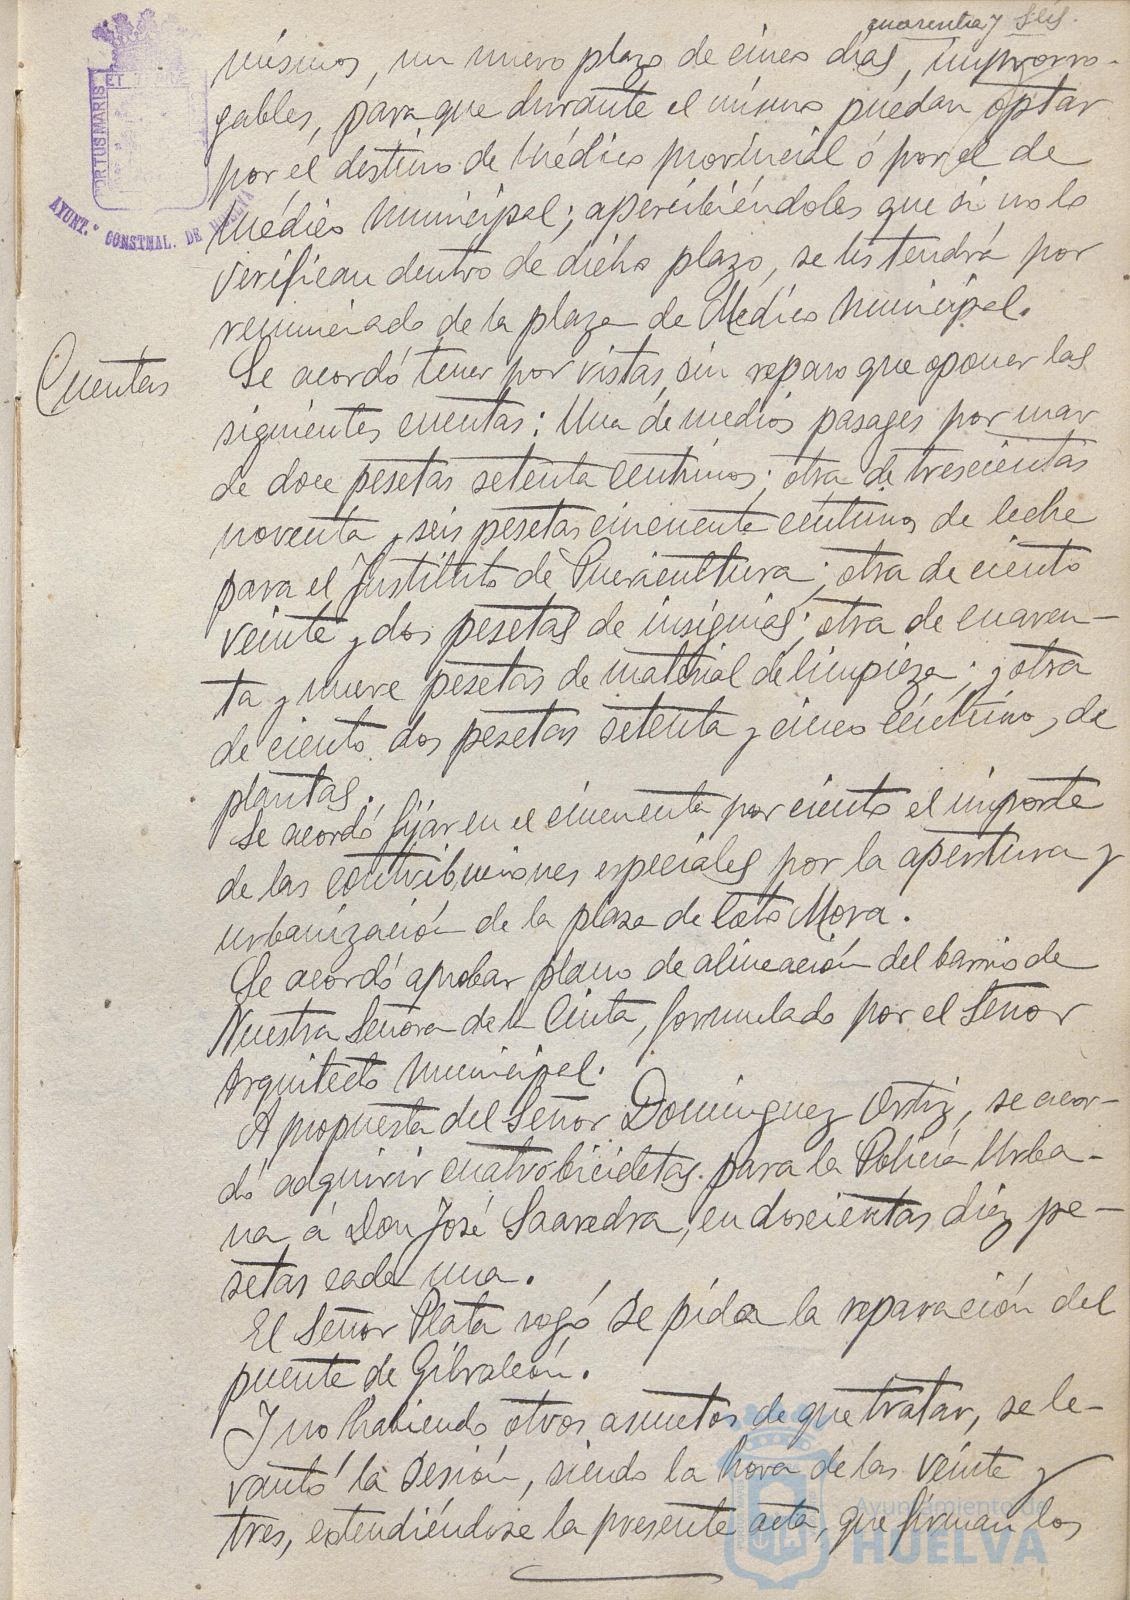 cuarenta y seis.
PORTUS MARIS
ET TERRE
AYUNT.º CONSTNAL. DE HUELVA
mismos, un nuevo plazo de cinco dias, improrro-
gables, para que durante el mismo puedan optar
por el destino de Médico provincial ó por el de
Médico Municipal; apercibiéndoles que si no lo
verifican dentro de dicho plazo, se les tendrá por
renunciado de la plaza de Medico Municipal.
Cuentas
Se acordó tener por vistas, sin reparo que oponer las
siguientes cuentas: Una de medios pasages por mar
de doce pesetas setenta centimos; otra de trescientas
noventa y seis pesetas cincuenta centimos de leche
para el Instituto de Puericultura; otra de ciento
veinte y dos pesetas de insignias; otra de cuaren-
ta y nueve pesetas de material de limpieza; y otra
de ciento dos pesetas setenta y cinco céntimos, de
plantas.
Se acordó fijar en el cincuenta por ciento el importe
de las contribuciones especiales por la apertura y
urbanización de la plaza de Coto Mora.
Se acordó aprobar plano de alineación del barrio de
Nuestra Señora de la Cinta, formulado por el Señor
Arquitecto Municipal.
A propuesta del Señor Dominguez Ortiz, se acor-
dó adquirir cuatro bicicletas para la Policía Urba-
na á Don José Saavedra, en doscientas diez pe-
setas cada una.
El Señor Plata rogó se pida la reparación del
puente de Gibraleón.
Y no habiendo otros asuntos de que tratar, se le-
vantó la sesión, siendo la hora de las veinte y
tres, extendiéndose la presente acta, que firman los
Ayuntamiento de
HUELVA